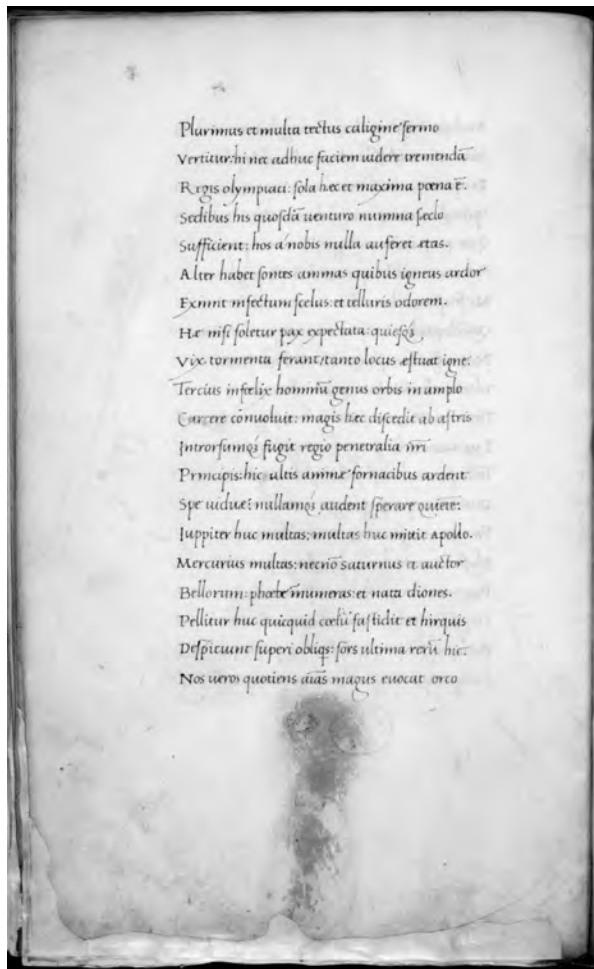 Plurimus et multa tectus caligine sermo
Vertitur: hi nec adhuc faciem uidere tremendā
Regis olympiaci: sola hæc et maxima pœna ē.
Sedibus his quosdā uenturo numina sæclo
Sufficient: hos a nobis nulla auferet ætas.
Alter habet fontes animas quibus igneus ardor
Eximit infectum scelus: et telluris odorem.
Hæ nisi soletur pax expectata: quiesq;
Vix tormenta ferant: tanto locus æstuat igne:
Tercius infœlix hominū genus orbis in amplo
Carcere conuoluit: magis hæc discedit ab astris
Introrsumq; fugit regio penetralia nr̄i
Principis: hic ultis animæ fornacibus ardent
Spe uiduæ: nullamq; audent sperare quietē:
Iuppiter huc multas: multas huc mittit Apollo.
Mercurius multas: necnō saturnus et auctor
Bellorum: phœbe īnumeras: et nata diones.
Pellitur huc quicquid cœlū fastidit et hirquis
Despiciunt superi obliqs: sors ultima rerū hic.
Nos uero quotiens aīas magus euocat orco